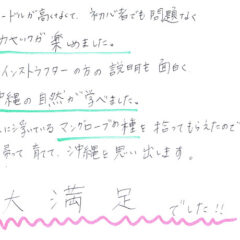 ードルが高くなくて、初心者でも問題なく
カヤックが楽しめました。
インストラクターの方の説明も面白く
沖縄の自然が学べました。
に浮いているマングローブの種を拾ってもらえたので
帰って育てて、沖縄を思い出します。
大満足でした!!